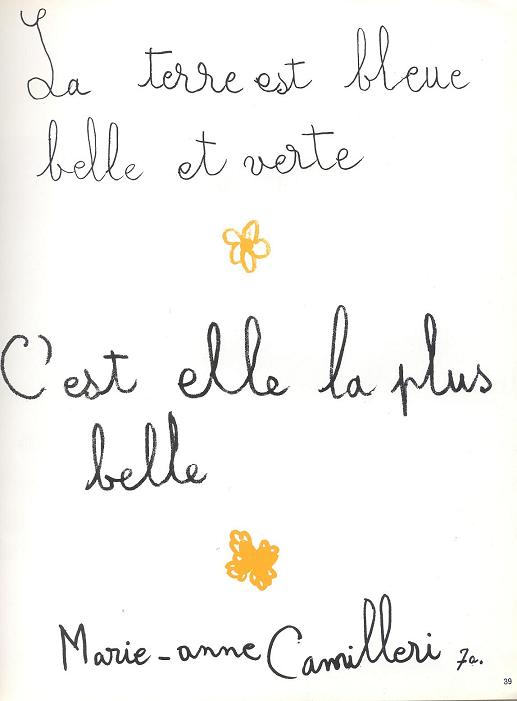 La terre est bleue
belle et verte
C'est elle la plus
belle
Marie-anne Camilleri 7a.
39